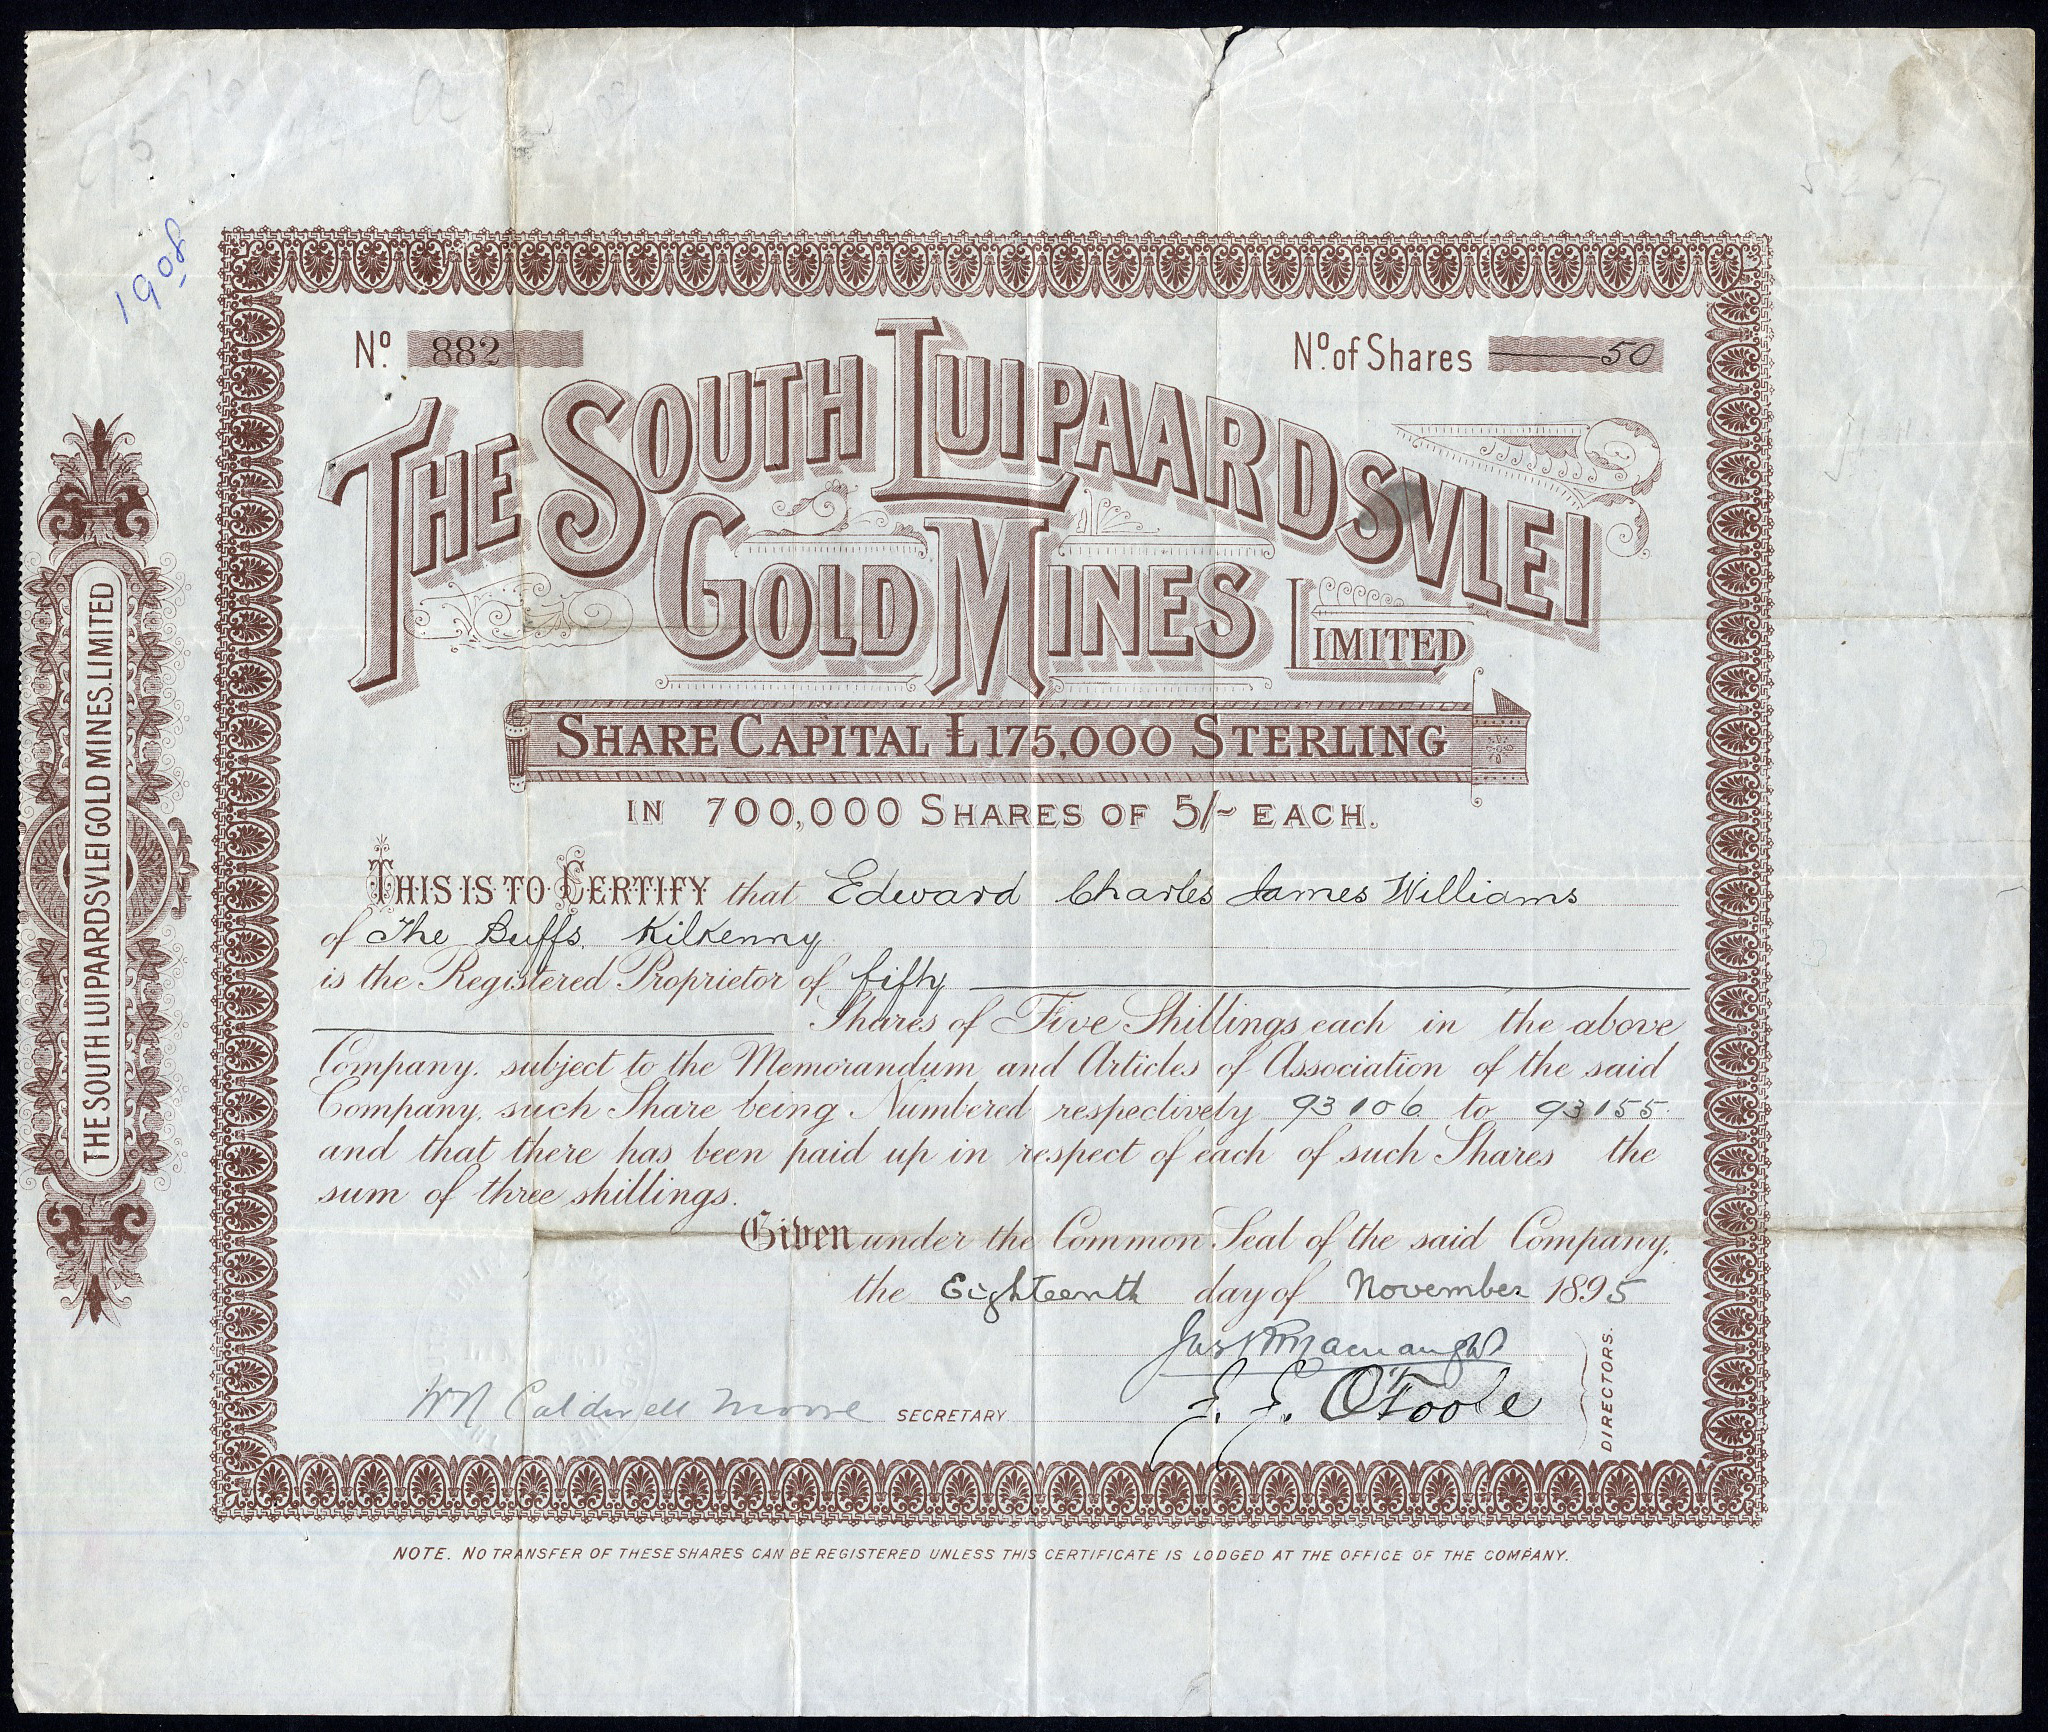 19 08
No. 882
No. of Shares 50
THE SOUTH LUIPAARDSVLEI
GOLD MINES LIMITED
SHARE CAPITAL £175,000 STERLING
IN 700,000 SHARES OF 5/- EACH.
THIS IS TO CERTIFY that Edward Charles James Williams
of The Buffs, Kilkenny
is the Registered Proprietor of fifty
Shares of Five Shillings each in the above
Company, subject to the Memorandum and Articles of Association of the said
Company, such Share being Numbered respectively 93106 to 93155.
and that there has been paid up in respect of each of such Shares the
sum of three shillings.
Given under the Common Seal of the said Company,
the Eighteenth day of November 1895
Caldwell Moore SECRETARY
J. J. O'Toole
DIRECTORS.
NOTE. NO TRANSFER OF THESE SHARES CAN BE REGISTERED UNLESS THIS CERTIFICATE IS LODGED AT THE OFFICE OF THE COMPANY.
THE SOUTH LUIPAARDSVLEI GOLD MINES. LIMITED